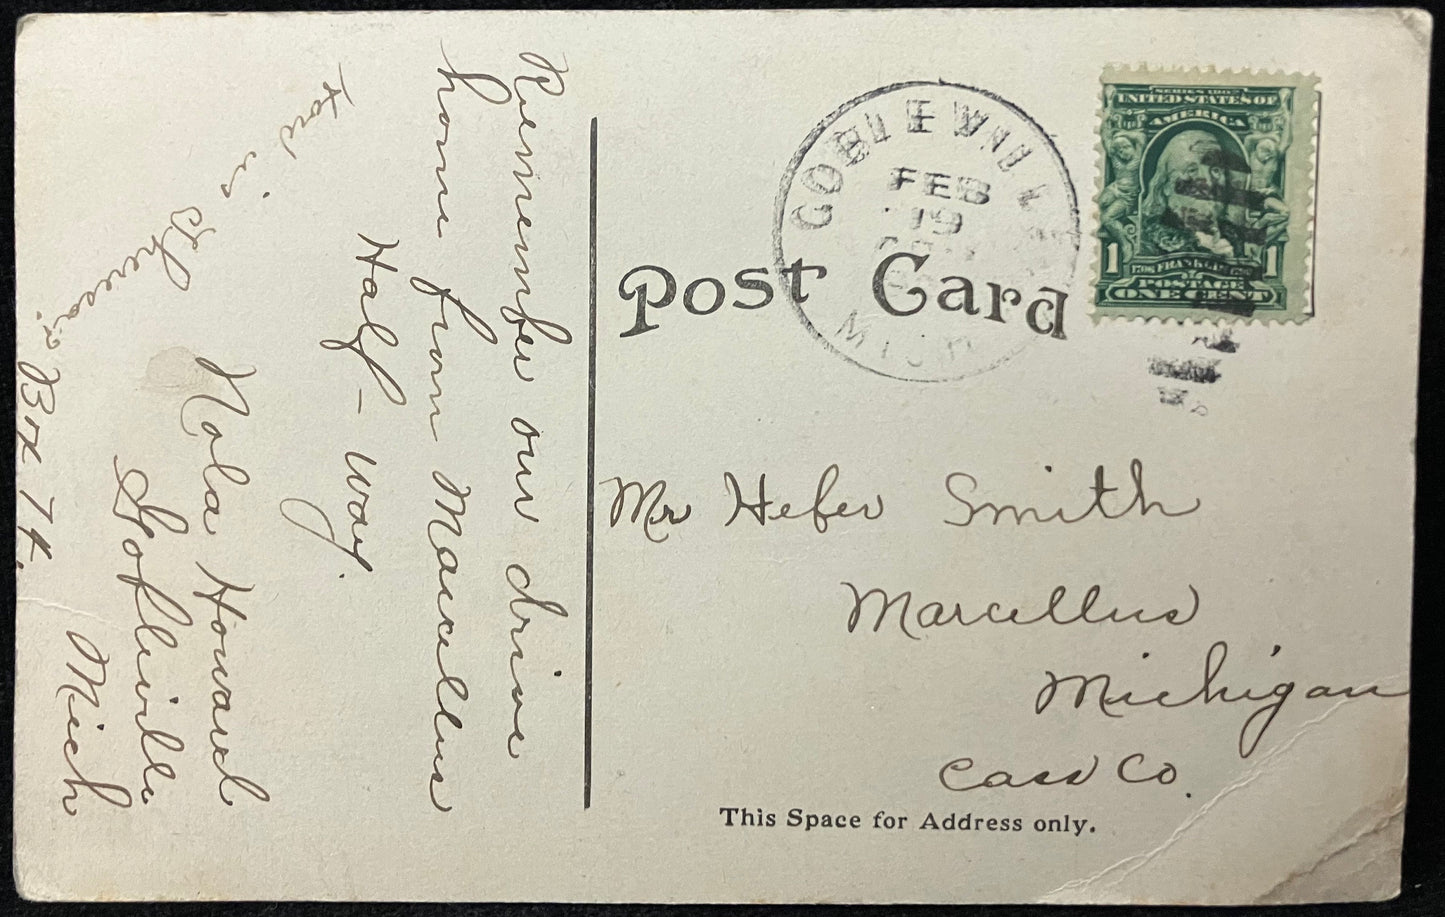 Remember our drive
home from Marcellus
Half-way.
How is
Nola Howard
Goblevills
Mich
Box 74.
Post Card
GOBLEVILLE
FEB
19
MICH
SERIES 1902
UNITED STATES OF
AMERICA
1 1
FRANKLIN
POSTAGE
ONE CENT
Mr Heber Smith
Marcellus
Michigan
Cass Co.
This Space for Address only.